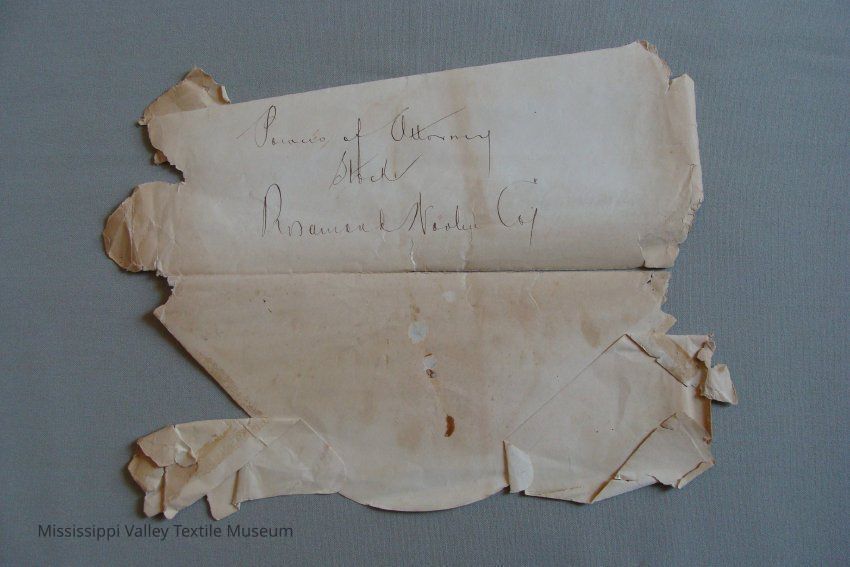 Powers of Attorney
Stock
Rosamond Woolen Coy
Mississippi Valley Textile Museum